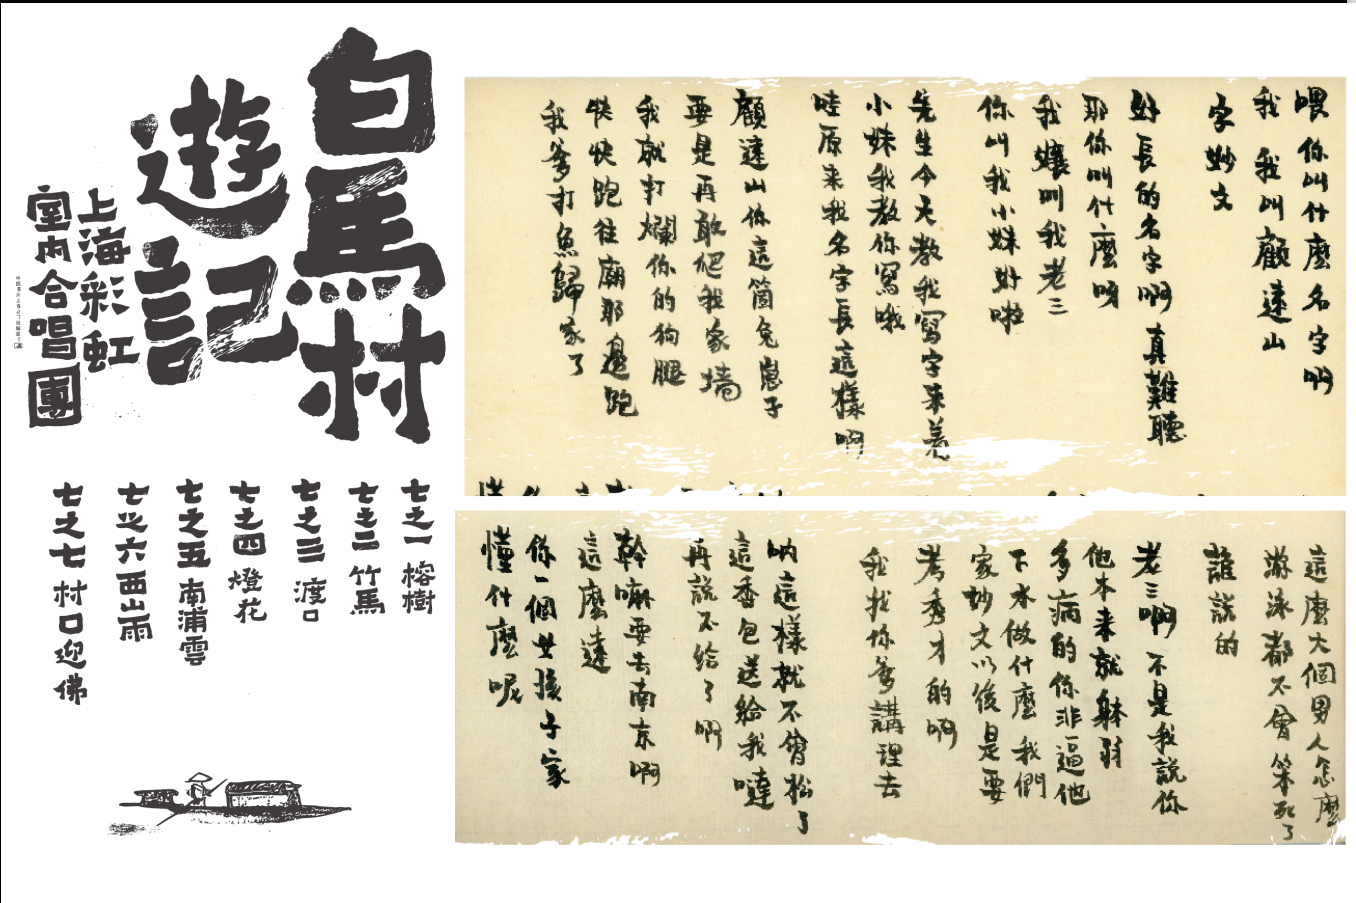 白馬村
遊記
上海彩虹
室内合唱團
七之一 榕樹
七之二 竹馬
七之三 渡口
七之四 燈花
七之五 南浦雲
七之六 西山雨
七之七 村口迎佛
喂你叫什麼名字啊
我 我叫顧遠山
字妙文
好長的名字啊 真難聽
那你叫什麼呀
我孃叫我老三
你叫我小妹好啦
先生今天教我寫字来着
小妹我教你寫哦
哇原来我名字長這樣啊
顧遠山你這箇兔崽子
要是再敢爬我家墙
我就打爛你的狗腿
快快跑往廟那邊跑
我爹打魚歸家了
這麼大個男人怎麼
游泳都不會笨死了
誰說的
老三啊 不是我說你
他本来就躰弱
多病的你非逼他
下水做什麼我們
家妙文以後是要
考秀才的啊
我找你爹講理去
呐這樣就不會松了
這香包送給我噠
再說不给了啊
幹嘛要去南京啊
這麼遠
你一個女孩子家
懂什麼呢